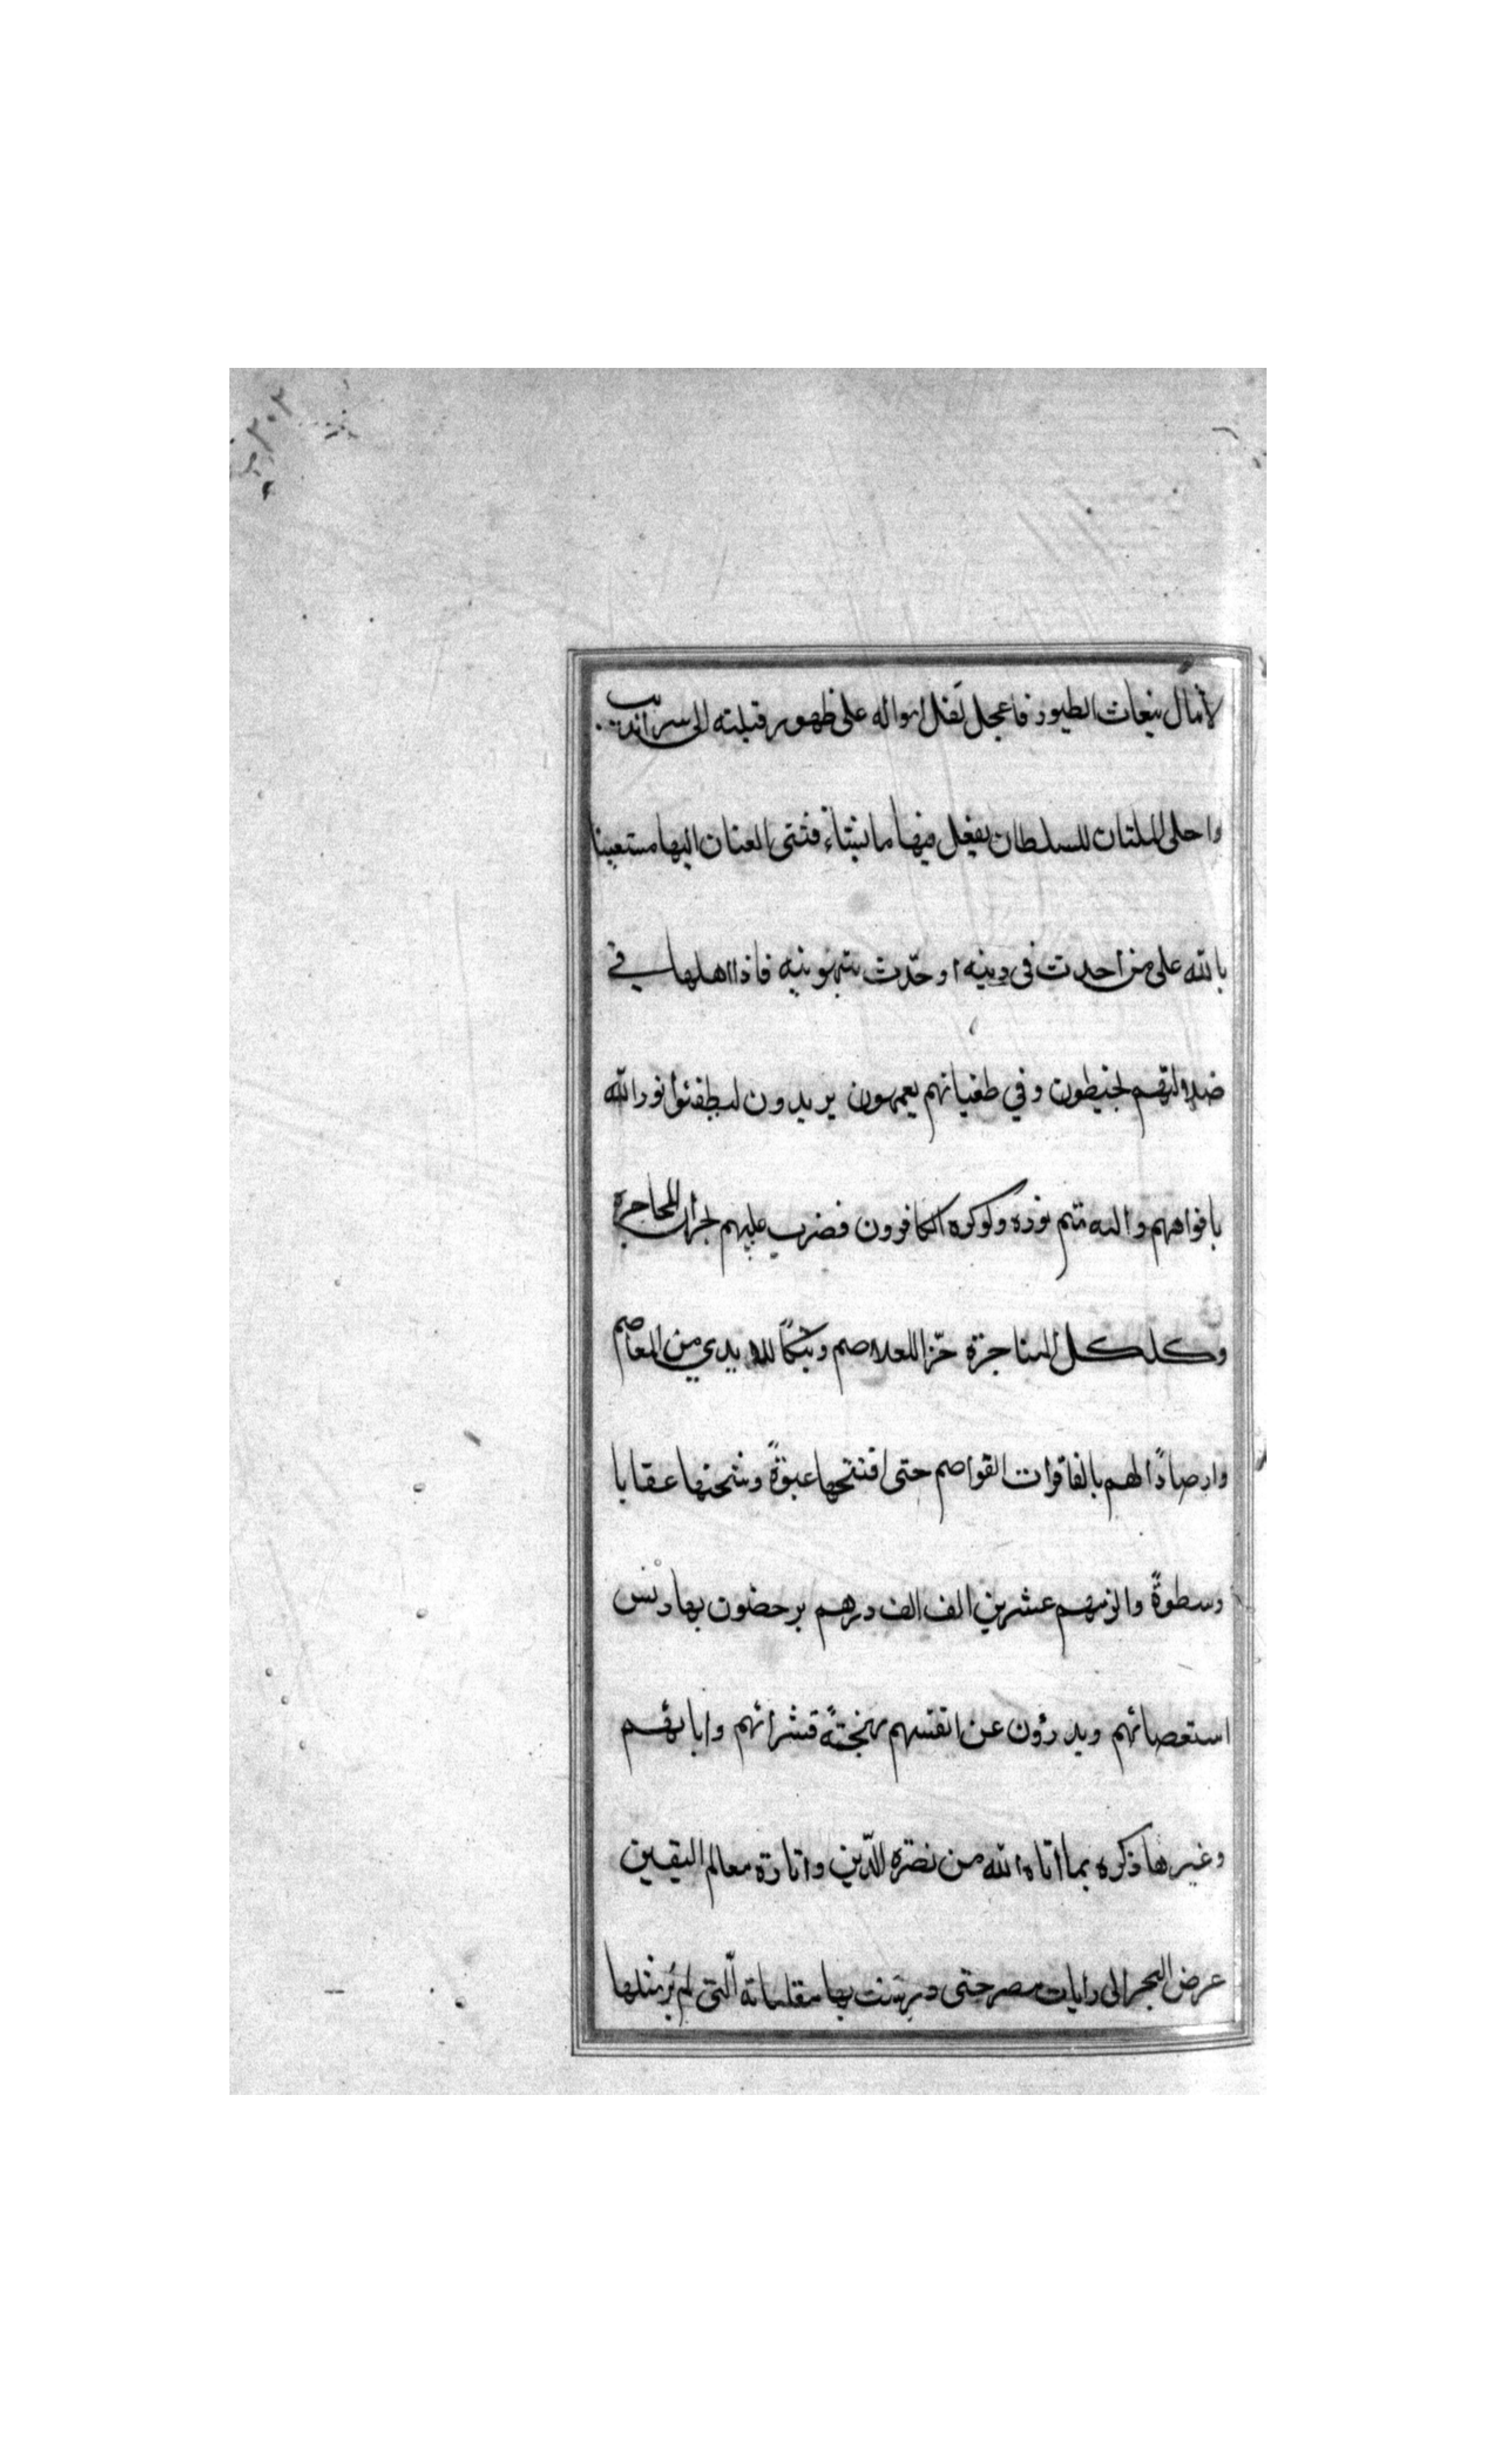 لأمال بنعاث الطيور فاعجل نقل امواله على ظهور قتلته الى سرانديب
واحلى الملتان للسلطان يفعل فيها ما يشاء فثنى العنان اليها مستعينا
بالله على من احدث في دينه او حدّث بتهوينه فاذا اهلها في
ضلالتهم لخبطون وفي طغيانهم يعمهون يريدون ليطفئوا نور الله
بافواههم والله متم نوره ولوكره الكافرون فضرب عليهم لجران المحاجرة
وكلكل المناجزة حزا للعلاصم وبتكا للايدي من المعاصم
وارصادًا لهم بالفاقرات القواصم حتى افتتحها عنوةً وشحنها عقابا
وسطوةً والزمهم عشرين الف الف درهم يرحضون بها دنس
استعصائهم ويدرؤن عن انفسهم قشرائهم وابائهم
وغيرها ذكره بما اتاه الله من نصرة للدّين وانارة معالم اليقين
عرض البحر الى رايات مصر حتى بها مقلماته الّتي لم يُر مثلها